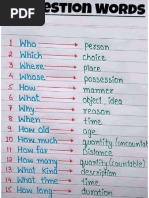 QUESTION WORDS
1 Who person
2 Which choice
3 Where place
4 Whose possession
5 How manner
6 What object, idea
7 Why reason
8 When time
9 How old age
10 How much quantity (uncountable)
11 How far distance
12 How many quantity (countable)
13 What kind description
14 What time time
15 How long duration